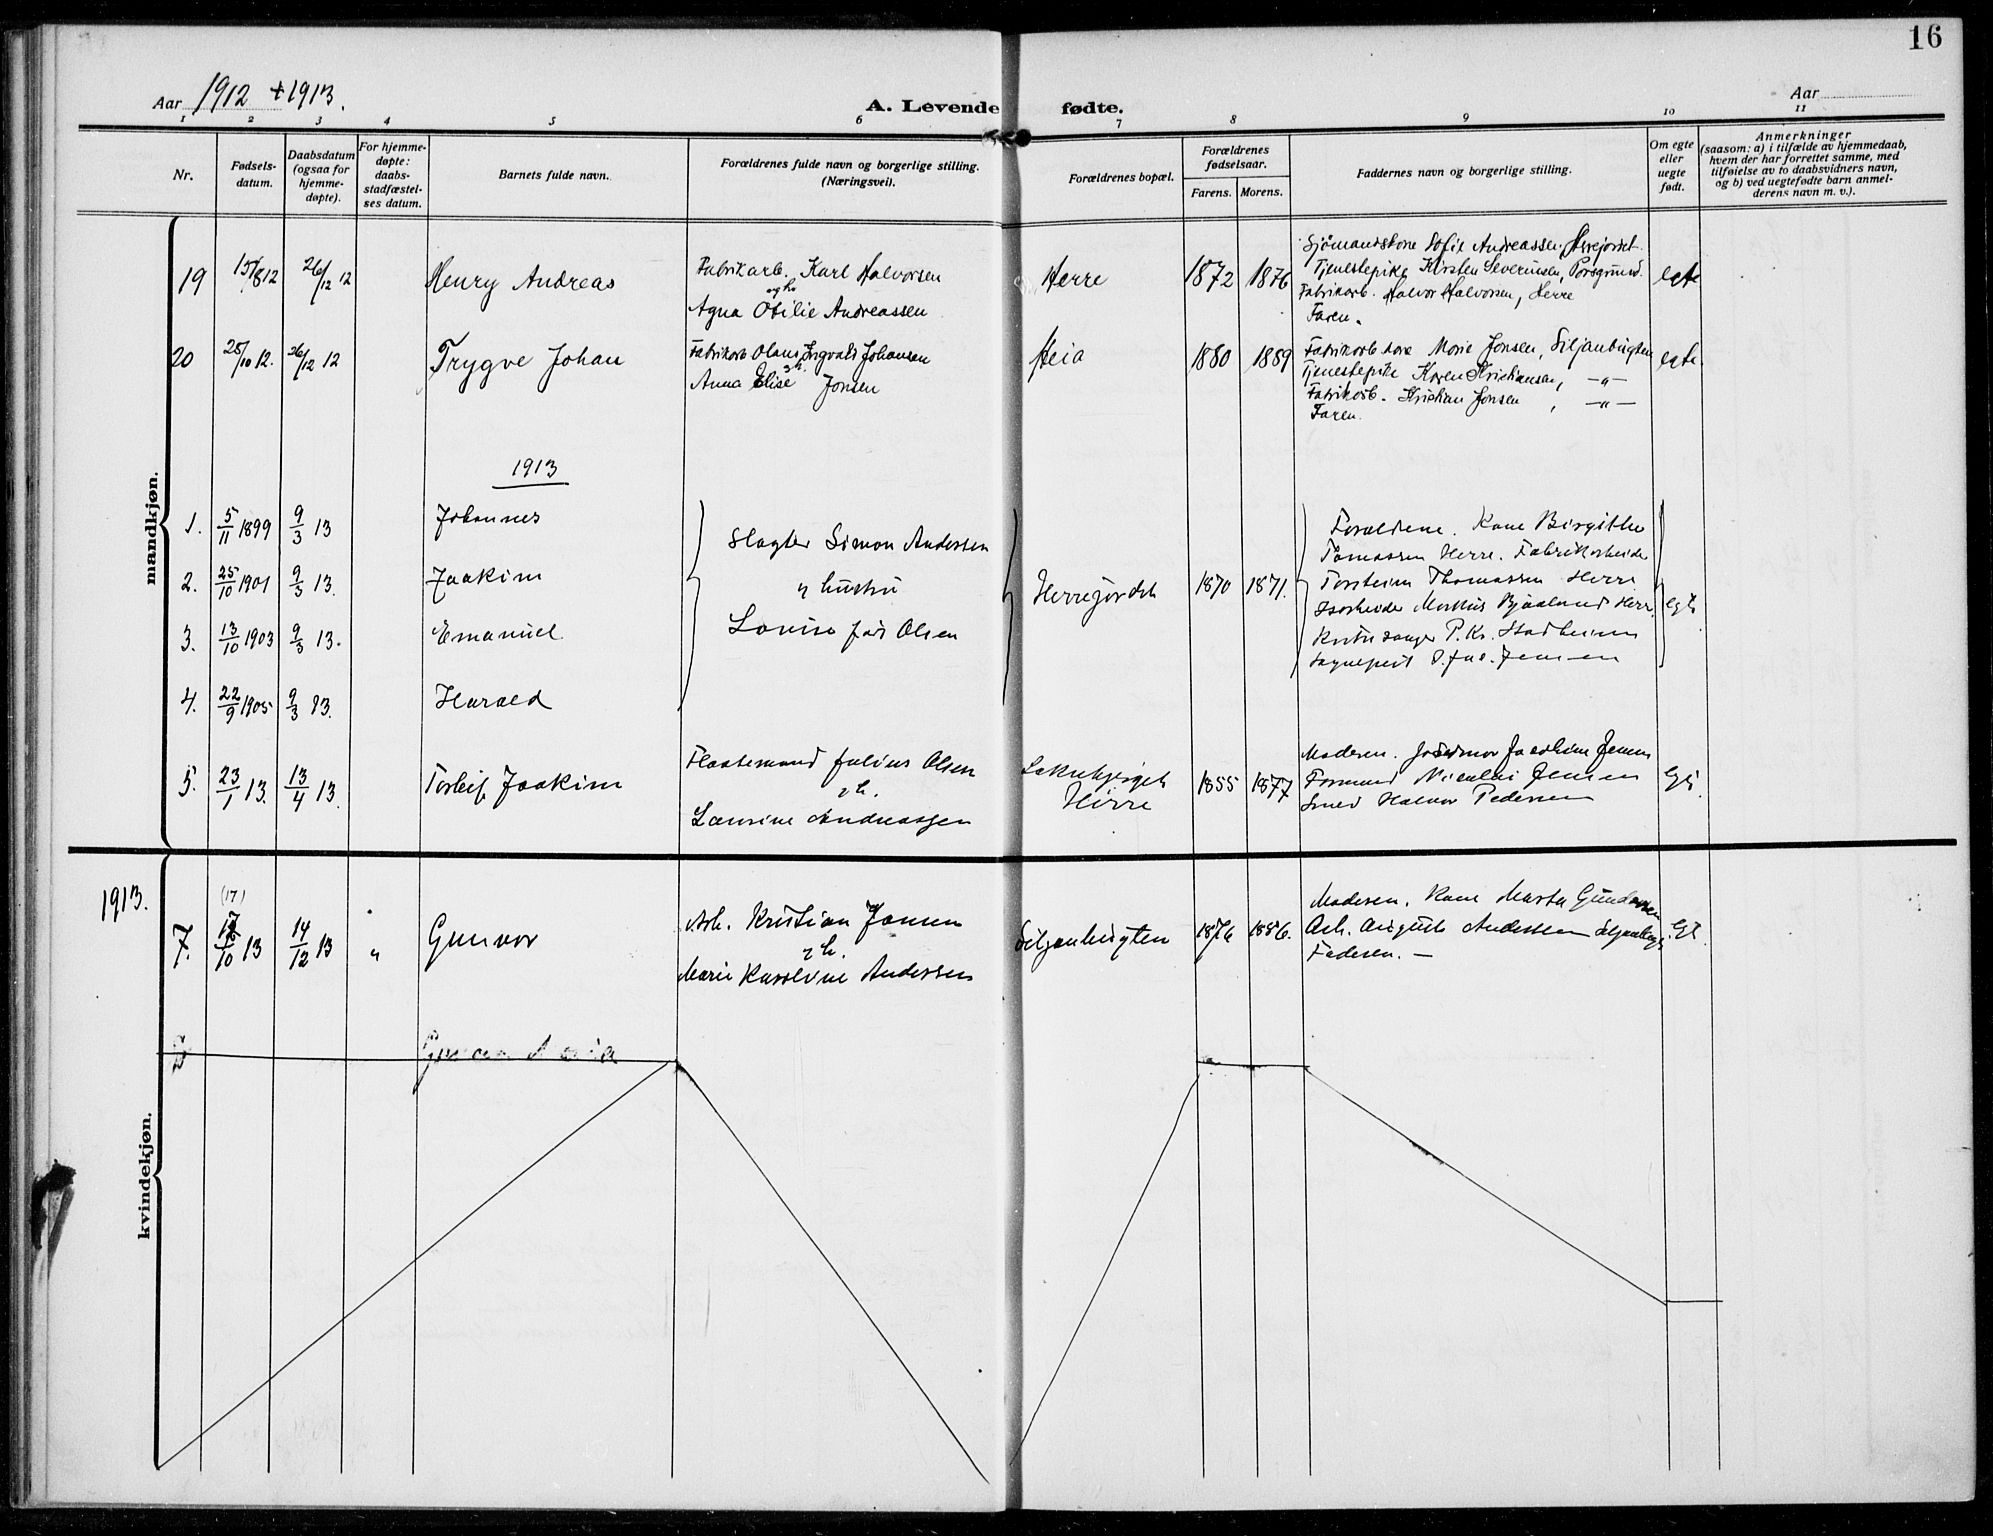 16
Aar 1912 + 1913.
A. Levende fødte.
Aar
1 2 3 4 5 6 7 8 9 10 11
Nr.
Fødsels-
datum.
Daabsdatum
(ogsaa for
hjemme-
døpte).
For hjemme-
døpte:
daabs-
stadfæstel-
ses datum.
Barnets fulde navn.
Forældrenes fulde navn og borgerlige stilling.
(Næringsvei).
Forældrenes bopæl.
Forældrenes
fødselsaar.
Farens. Morens.
Faddernes navn og borgerlige stilling.
Om egte
eller
uegte
født.
Anmerkninger
(saasom: a) i tilfælde av hjemmedaab,
hvem der har forrettet samme, med
tilføielse av to daabsvidners navn,
og b) ved uegtefødte barn anmel-
derens navn m. v.).
mandkjøn.
19 15/8 12 26/12 12 Henry Andreas
Fabrikarb. Karl Halvorsen
og h.
Agna Otilie Andreassen
Herre 1872 1876
Sjømandskone Sofie Andreassen, Herrejordet
Tjenestepike Kirsten Severinsen, Porsgrund.
Fabrikarb. Halvor Halvorsen, Herre
Faren.
egte
20 25/10 12. 26/12 12 Trygve Johan
Fabrikarb Olaus Ingvald Johansen
Anna Elise Jonsen
Heia 1880 1889
Fabrikarb kone Marie Jonsen, Siljanbugten
Tjenestepike Karen Kristiansen, -"-
Fabrikarb. Kristian Jonsen, -"-
Faren.
egte.
1913
1. 5/11 1899 9/3 13 Johannes
2. 25/10 1901 9/3 13. Joakim
3. 13/10 1903 9/3 13. Emanuel
4. 22/9 1905 9/3 13. Harald
Slagter Simon Andersen
hustru
Lovise fød Olsen
Herregjordet 1870 1871.
Forældrene. Kone Birgitte
Tomassen Herre. Fabrikarbeider
Torstein Thomassen Herre
Markus Bjaaland Herre
Kirkesanger P. Kr. Stadheim
Sogneprest Jensen
egte
5. 23/1 13. 13/4 13. Torleif Joakim
Flaatemand Julius Olsen
h.
Laurine Andreassen
Herre
1855 1877
Moderen. Jordmor Jensen
Formand Nicolai Jensen
Smed Halvor Pedersen
Egte.
kvindekjøn.
1913.
(17)
7. 17/10 13 14/12 13 " Gunvor
Arb. Kristian Jonsen
h.
Marie Karoline Andersen
Siljanbugten 1876 1886.
Moderen. Kone Marta Gundersen
Arb. August Andersen Siljanbugt.
Faderen. —
Egt.
8